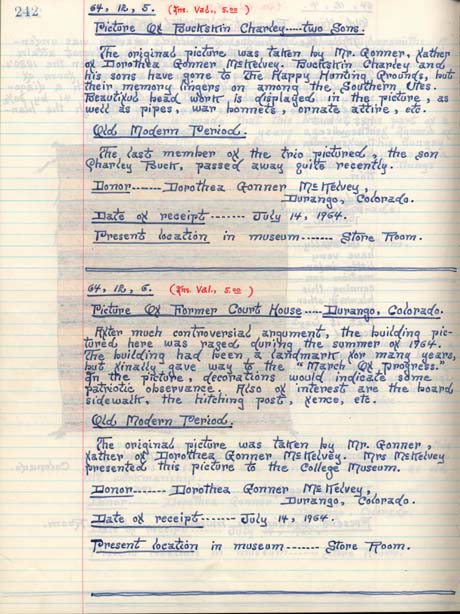 242
64, 12, 5. (Ins. Val., 5.00)
Picture Of Buckskin Charley----two Sons.
The original picture was taken by Mr. Gonner, father
of Dorothea Gonner McKelvey. Buckskin Charley and
his sons have gone to the Happy Hunting Grounds, but
their memory lingers on among the Southern Utes.
Beautiful bead work is displayed in the picture, as
well as pipes, war bonnets, ornate attire, etc.
Old Modern Period.
The last member of the trio pictured, the son
Charley Buck, passed away quite recently.
Donor-------Dorothea Gonner McKelvey,
Durango, Colorado.
Date of receipt------- July 14, 1964.
Present location in museum------- Store Room.
64, 12, 6. (Ins. Val., 5.00)
Picture Of Former Court House----Durango, Colorado.
After much controversial argument, the building pic-
tured here was razed during the summer of 1964.
The building had been a landmark for many years,
but finally gave way to the "March Of Progress."
In the picture, decorations would indicate some
patriotic observance. Also of interest are the board
sidewalk, the hitching post, fence, etc.
Old Modern Period.
The original picture was taken by Mr. Gonner,
father of Dorothea Gonner McKelvey. Mrs McKelvey
presented this picture to the College Museum.
Donor------ Dorothea Gonner McKelvey,
Durango, Colorado.
Date of receipt------- July 14, 1964.
Present location in museum------- Store Room.